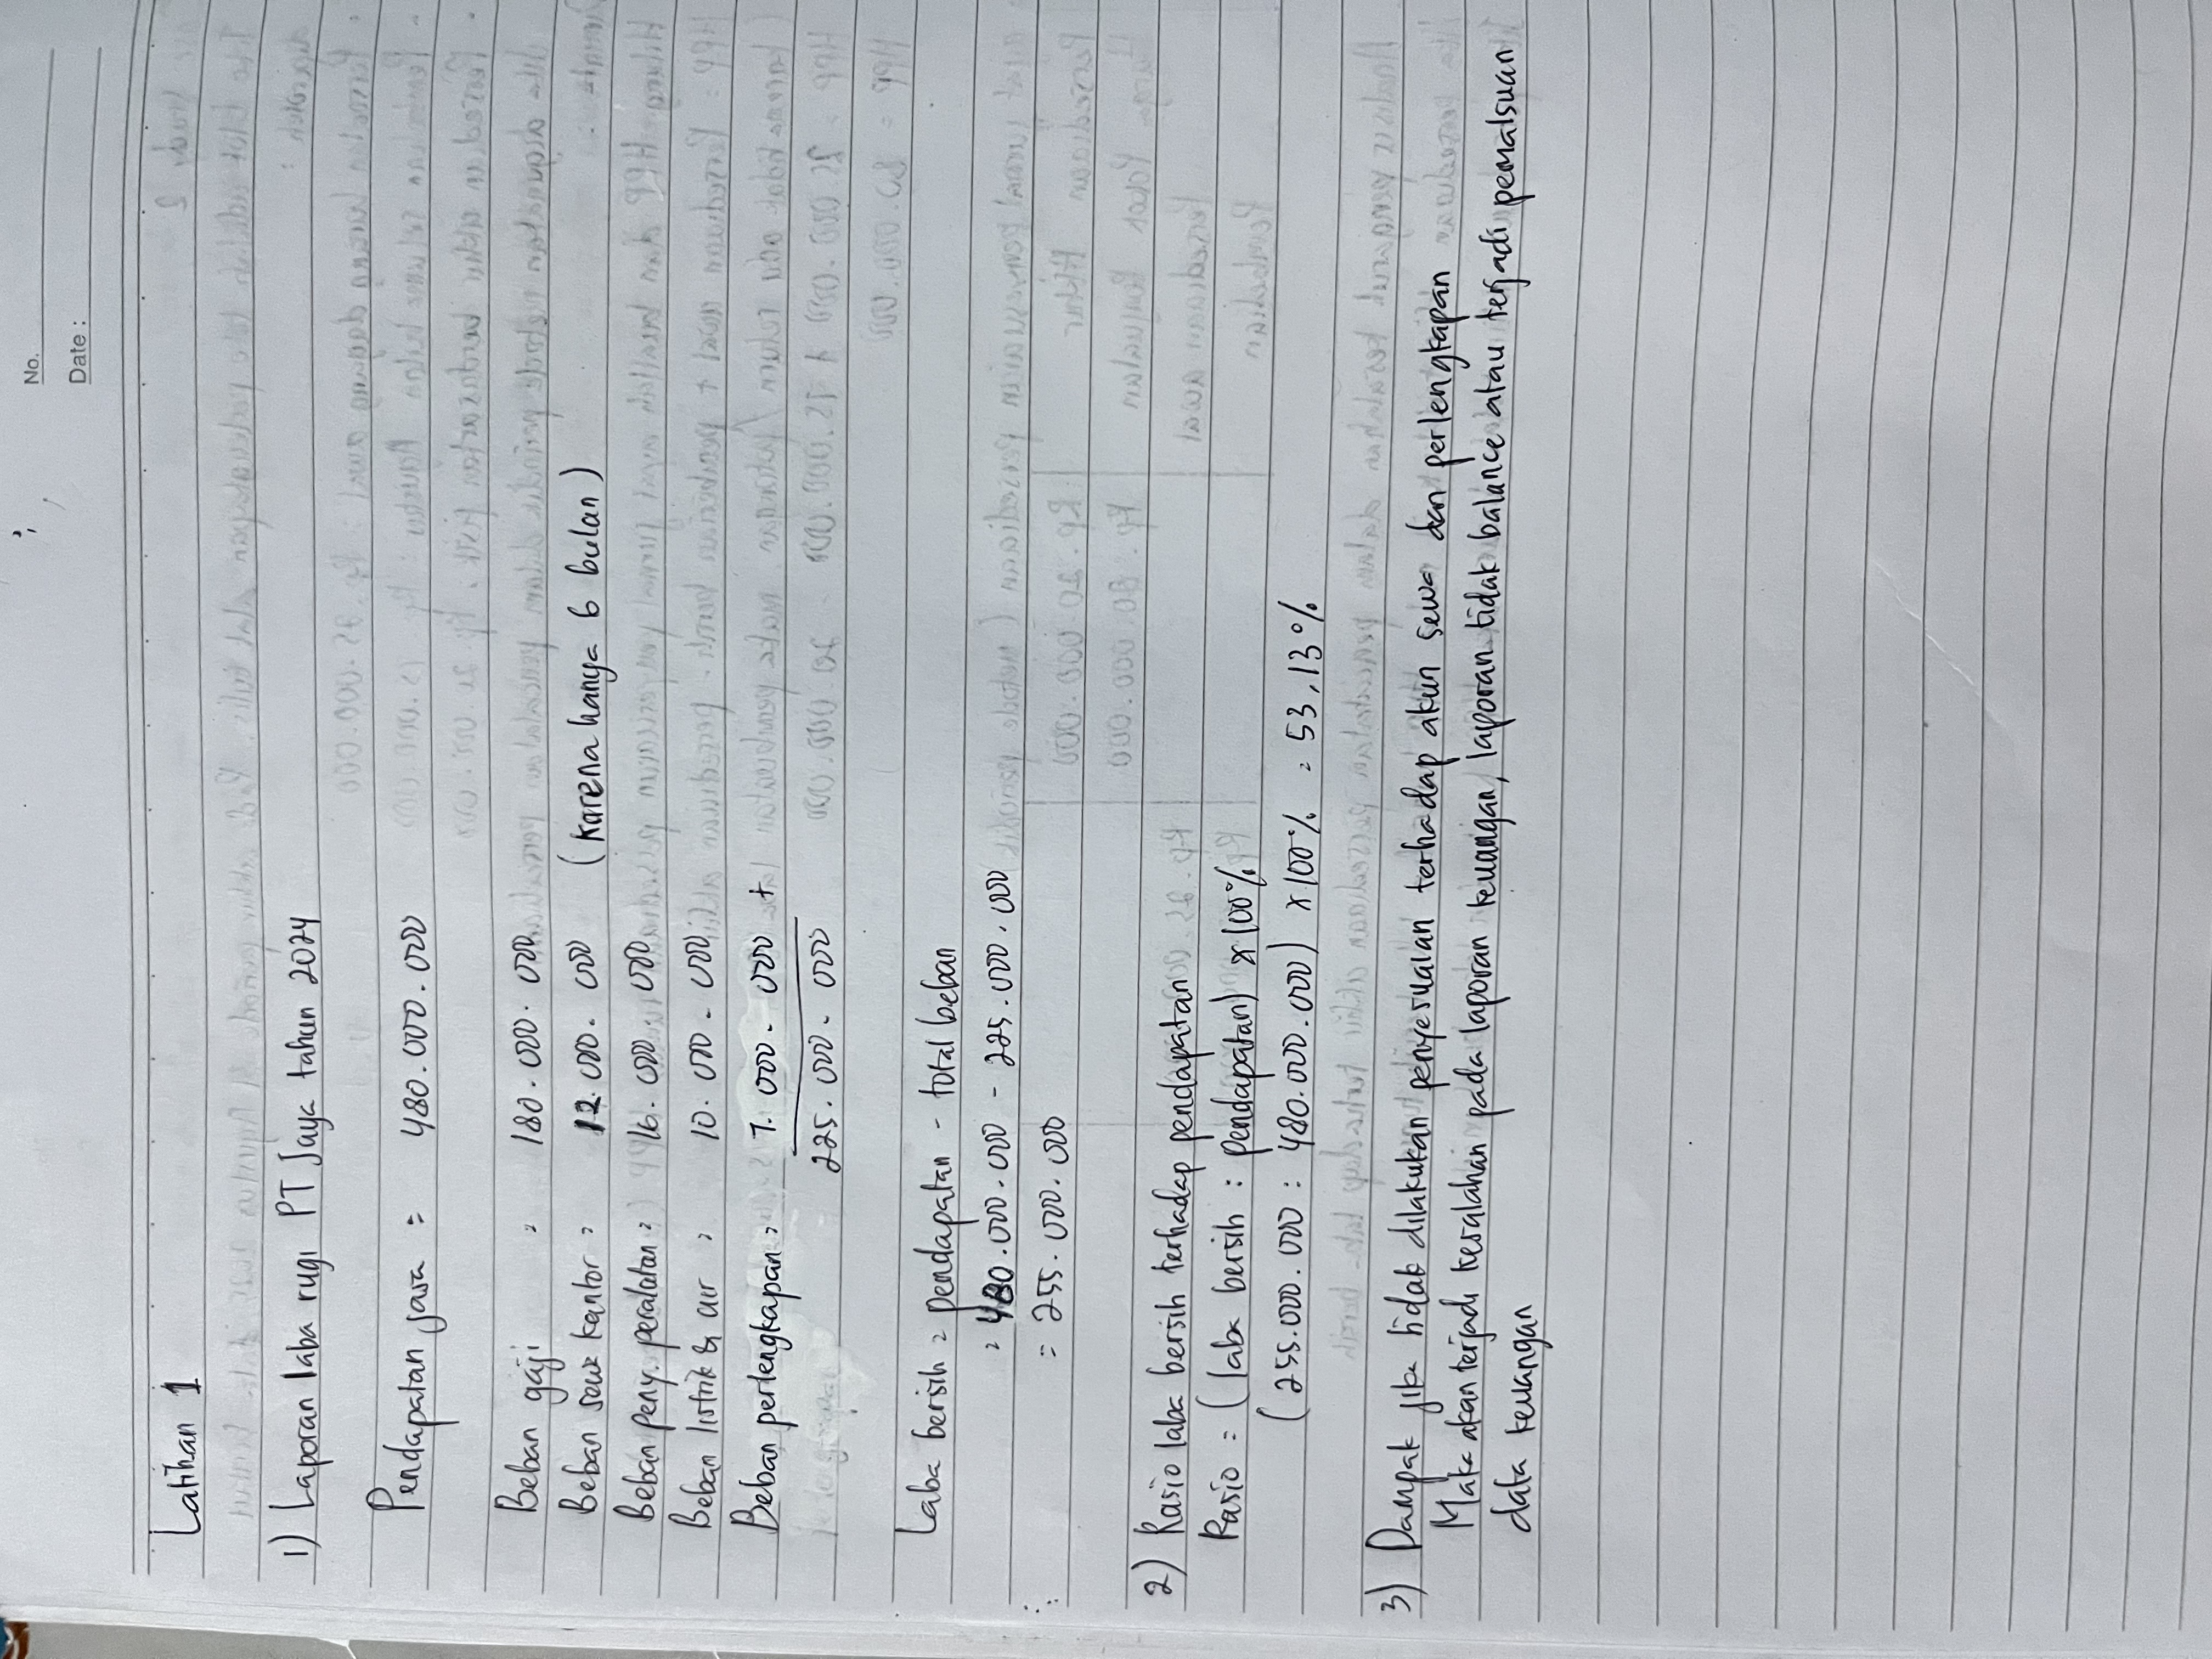 No.
Date :
Latihan 1
1) Laporan laba rugi PT Jaya tahun 2024
Pendapatan jasa = 480.000.000
Beban gaji = 180.000.000
Beban sewa kantor = 12.000.000 (karena hanya 6 bulan)
Beban peny. peralatan = 16.000.000
Beban listrik & air = 10.000.000
Beban perlengkapan = 7.000.000 +
225.000.000
Laba bersih = pendapatan - total beban
= 480.000.000 - 225.000.000
= 255.000.000
2) Rasio laba bersih terhadap pendapatan
Rasio = (laba bersih : pendapatan) x 100%
(255.000.000 : 480.000.000) x 100% = 53,13%
3) Dampak jika tidak dilakukan penyesuaian terhadap akun sewa dan perlengkapan
Maka akan terjadi kesalahan pada laporan keuangan, laporan tidak balance atau terjadi pemalsuan
data keuangan